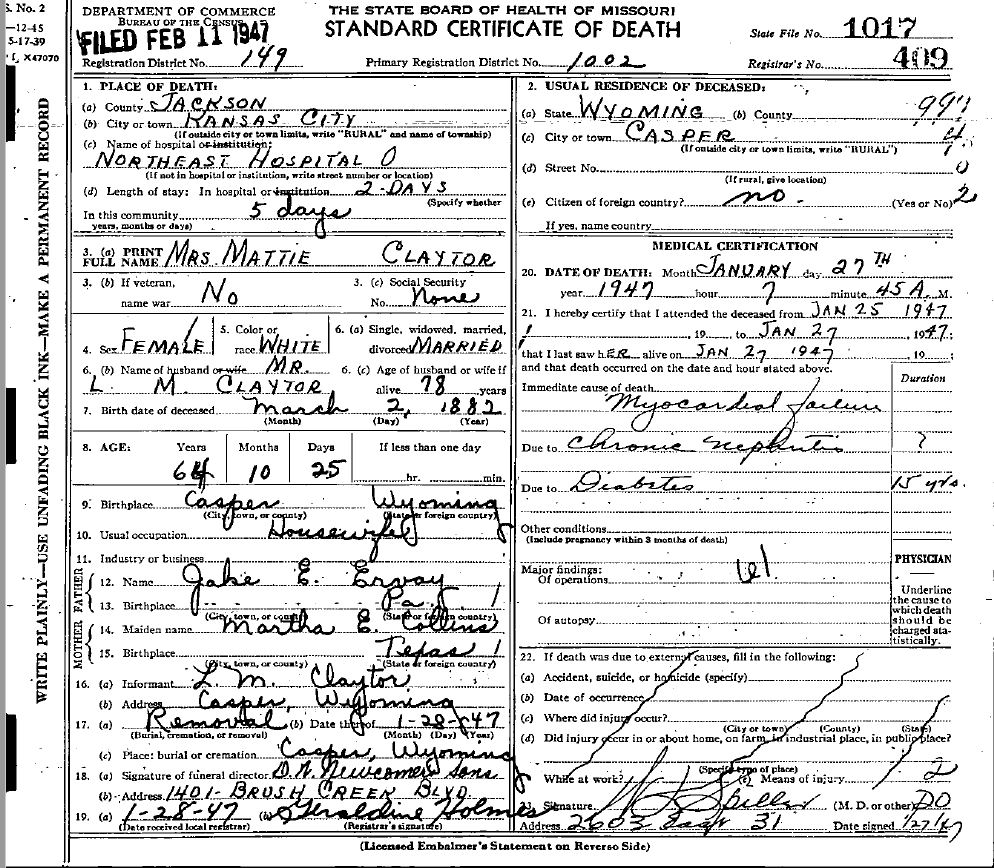 S. No. 2
—12-45
5-17-39
X47070
WRITE PLAINLY—USE UNFADING BLACK INK—MAKE A PERMANENT RECORD
DEPARTMENT OF COMMERCE
BUREAU OF THE CENSUS
FILED FEB 11 1947
Registration District No. 149
THE STATE BOARD OF HEALTH OF MISSOURI
STANDARD CERTIFICATE OF DEATH
Primary Registration District No. 1002
State File No. 1017
Registrar's No. 409
1. PLACE OF DEATH:
(a) County JACKSON
(b) City or town KANSAS CITY
(If outside city or town limits, write "RURAL" and name of township)
(c) Name of hospital or institution:
NORTHEAST HOSPITAL O
(If not in hospital or institution, write street number or location)
(d) Length of stay: In hospital or institution 2-DAYS
(Specify whether
In this community 5 days
years, months or days)
3. (a) PRINT FULL NAME MRS. MATTIE CLAYTOR
3. (b) If veteran, name war No
3. (c) Social Security No. None
4. Sex FEMALE 1
5. Color or race WHITE
6. (a) Single, widowed, married, divorced MARRIED
6. (b) Name of husband or wife MR. L. M. CLAYTOR
6. (c) Age of husband or wife if alive 78 years
7. Birth date of deceased March 2, 1882
(Month) (Day) (Year)
8. AGE: Years Months Days If less than one day
64 10 25 hr. min.
9. Birthplace Casper Wyoming
(City, town, or county) (State or foreign country)
10. Usual occupation Housewife
11. Industry or business
FATHER
12. Name Jake E. Ervay
13. Birthplace Pa. 1
(City, town, or county) (State or foreign country)
MOTHER
14. Maiden name Martha E. Collins
15. Birthplace Texas 1
(City, town, or county) (State or foreign country)
16. (a) Informant L. M. Claytor
(b) Address Casper, Wyoming
17. (a) Removal (b) Date thereof 1-28-47
(Burial, cremation, or removal) (Month) (Day) (Year)
(c) Place: burial or cremation Casper, Wyoming
18. (a) Signature of funeral director D. W. Newcomer's Sons
(b) Address 1401- BRUSH CREEK BLVD
19. (a) 1-28-47 (b) Geraldine Holmes
(Date received local registrar) (Registrar's signature)
2. USUAL RESIDENCE OF DECEASED:
(a) State WYOMING (b) County 999
(c) City or town CASPER
(If outside city or town limits, write "RURAL")
(d) Street No. 0
(If rural, give location)
(e) Citizen of foreign country? no. (Yes or No) 2
If yes, name country
MEDICAL CERTIFICATION
20. DATE OF DEATH: Month JANUARY day 27TH
year 1947 hour 7 minute 45 A. M.
21. I hereby certify that I attended the deceased from JAN 25 1947
19 to JAN 27, 1947;
that I last saw hER alive on JAN 27 1947 19 ;
and that death occurred on the date and hour stated above.
Duration
Immediate cause of death
Myocardial failure
Due to Chronic Nephritis ?
Due to Diabetes 15 yrs.
Other conditions
(Include pregnancy within 3 months of death)
Major findings:
Of operations
Of autopsy
PHYSICIAN
Underline the cause to which death should be charged statistically.
22. If death was due to external causes, fill in the following:
(a) Accident, suicide, or homicide (specify)
(b) Date of occurrence
(c) Where did injury occur?
(City or town) (County) (State)
(d) Did injury occur in or about home, on farm, in industrial place, in public place?
(Specify type of place)
While at work? (e) Means of injury 2
23. Signature Spiller (M. D. or other) DO
Address 2603 East 31 Date signed 1/27/47
(Licensed Embalmer's Statement on Reverse Side)